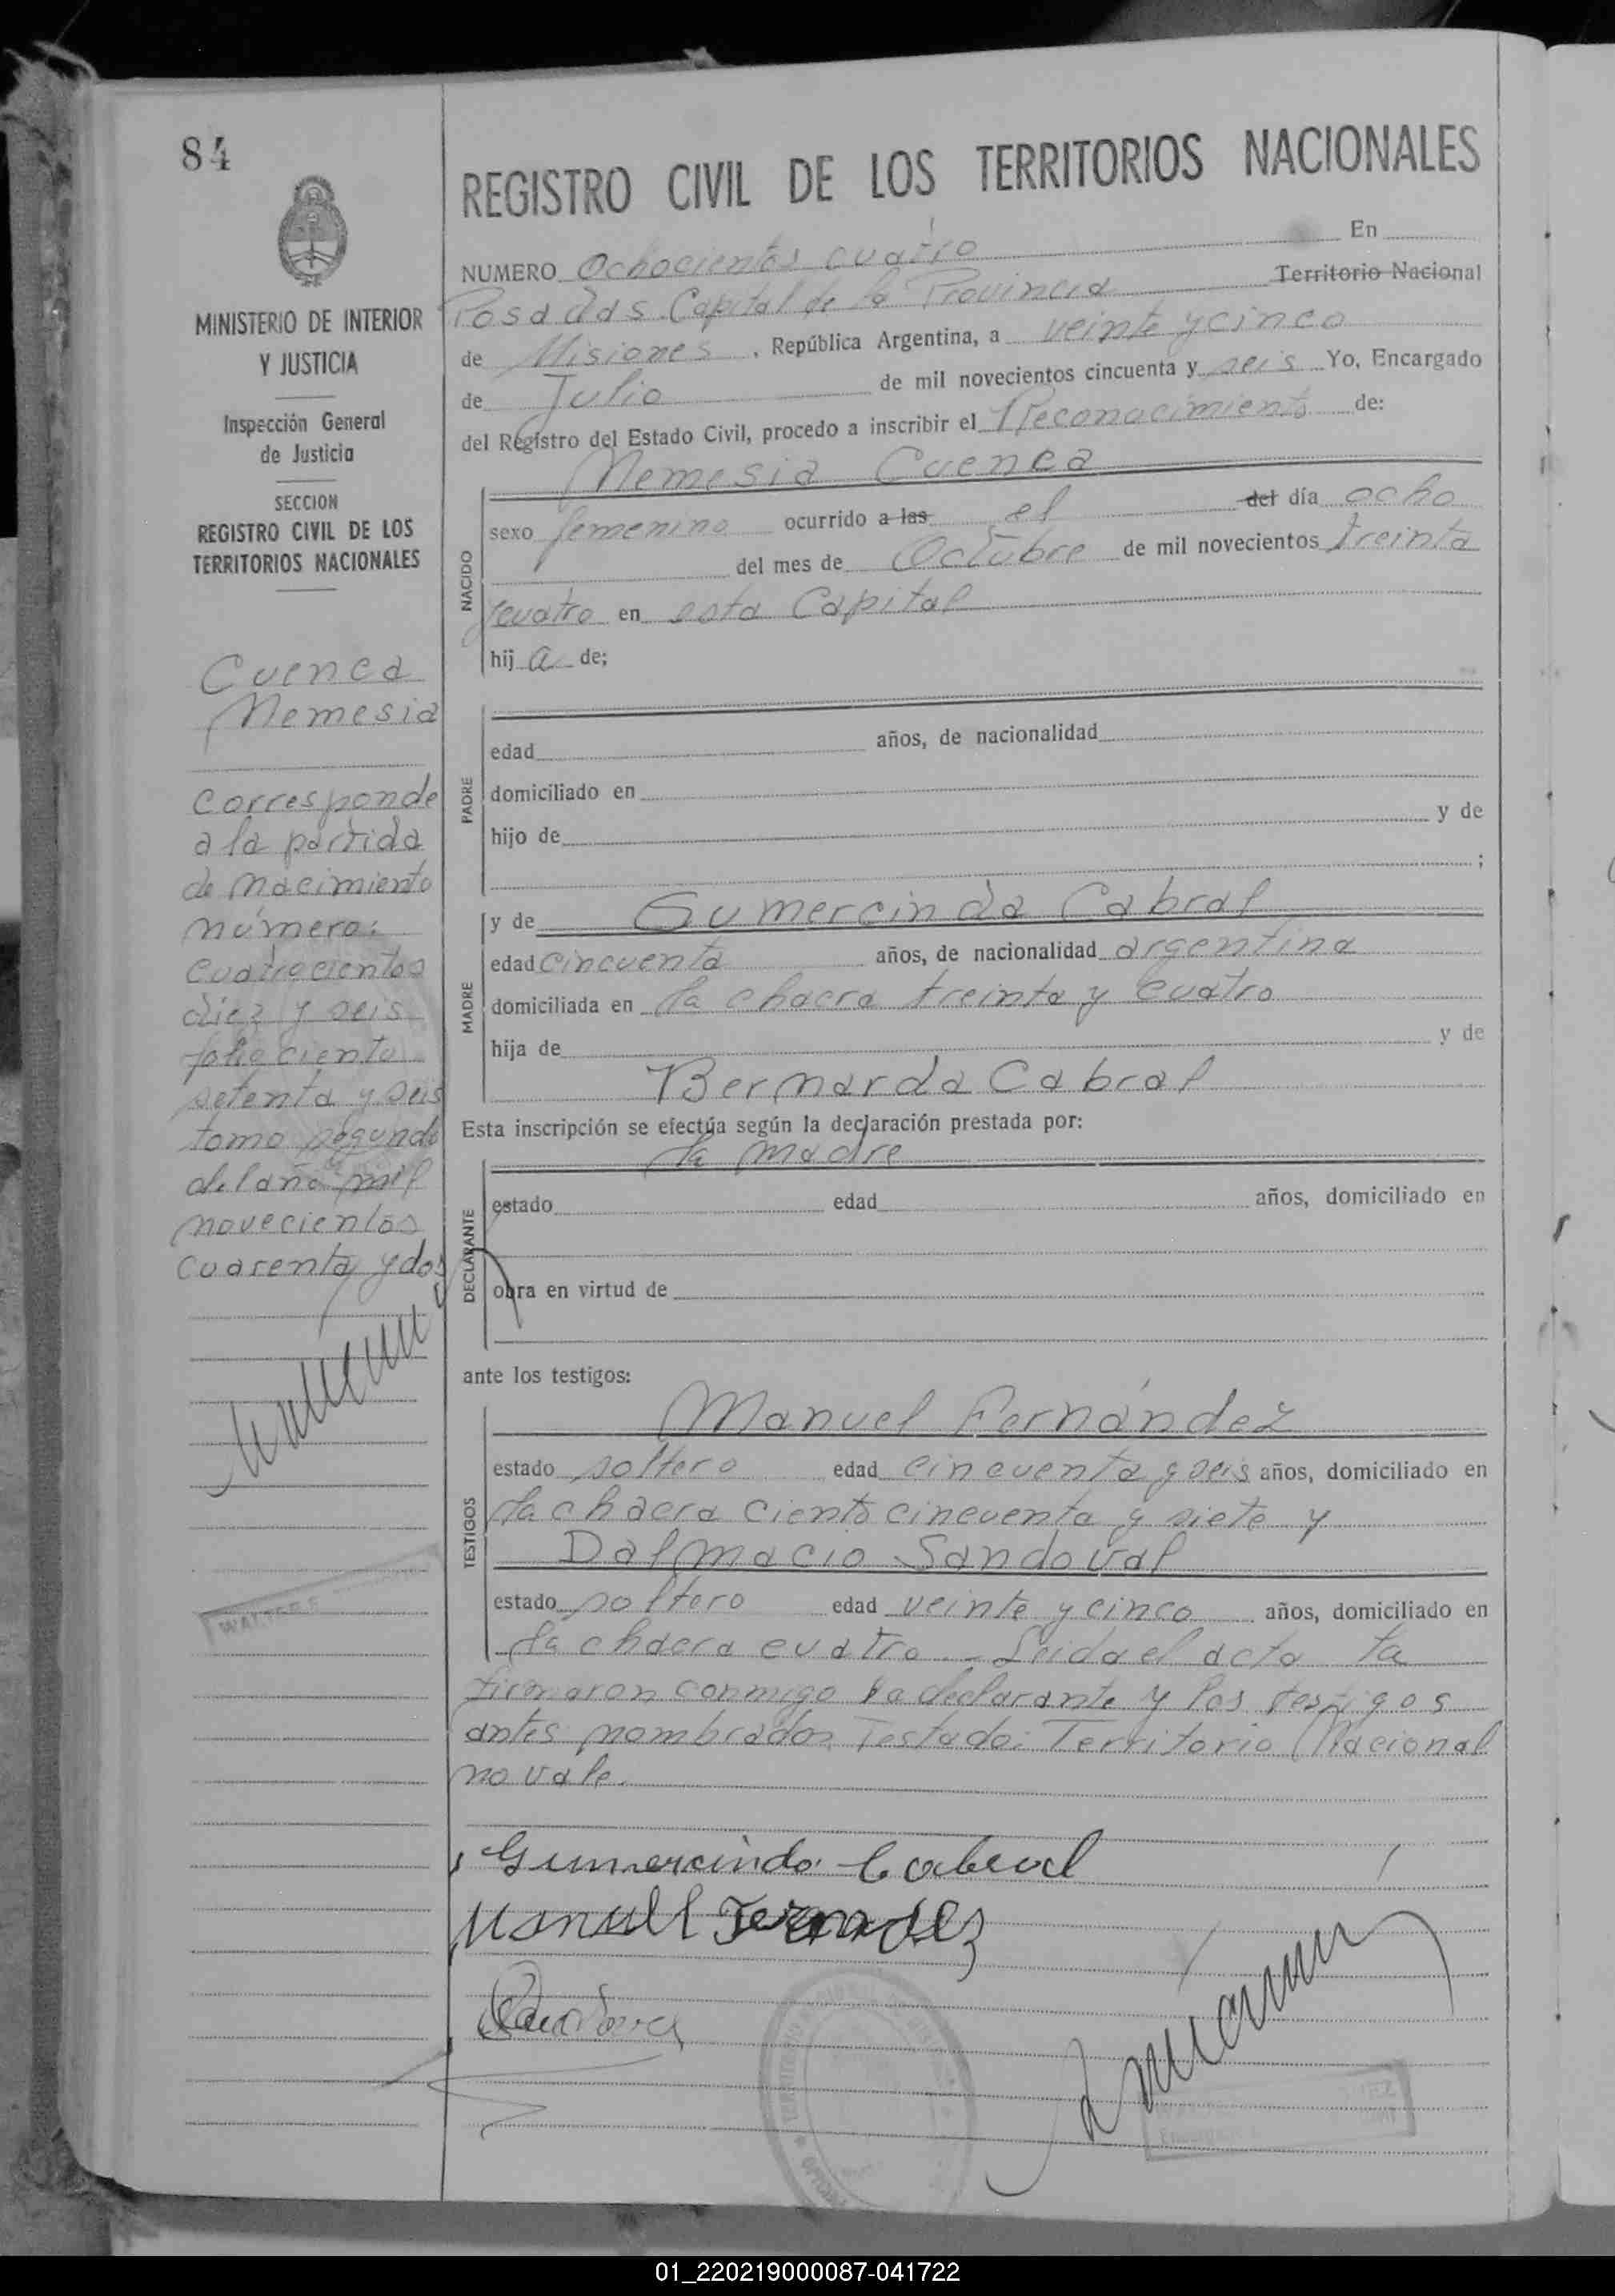 84
REGISTRO CIVIL DE LOS TERRITORIOS NACIONALES
MINISTERIO DE INTERIOR
Y JUSTICIA
Inspección General
de Justicia
SECCION
REGISTRO CIVIL DE LOS
TERRITORIOS NACIONALES
Cuenca
Nemesia
corresponde
a la partida
de nacimiento
número:
cuatrocientos
diez y seis
folio ciento
setenta y seis
tomo segundo
del año mil
novecientos
cuarenta y dos
NUMERO Ochocientos cuatro En
Posadas Capital de la Provincia Territorio Nacional
de Misiones, República Argentina, a veinte y cinco
de Julio de mil novecientos cincuenta y seis Yo, Encargado
del Registro del Estado Civil, procedo a inscribir el Reconocimiento de:
Nemesia Cuenca
NACIDO
sexo femenino ocurrido a las el del día ocho
del mes de Octubre de mil novecientos treinta
y cuatro en esta Capital
hija de;
PADRE
edad años, de nacionalidad
domiciliado en
hijo de y de
;
MADRE
y de Gumercinda Cabral
edad cincuenta años, de nacionalidad argentina
domiciliada en la chacra treinta y cuatro
hija de y de
Bernarda Cabral
Esta inscripción se efectúa según la declaración prestada por:
la madre
DECLARANTE
estado edad años, domiciliado en
obra en virtud de
ante los testigos:
TESTIGOS
Manuel Fernández
estado soltero edad cincuenta y seis años, domiciliado en
la chacra ciento cincuenta y siete y
Dalmacio Sandoval
estado soltero edad veinte y cinco años, domiciliado en
la chacra cuatro.- Leida el acta la
firmaron conmigo la declarante y los testigos
antes nombrados Testado: Territorio Nacional
no vale.
Gumercinda Cabral
Manuel Fernandez
01_220219000087-041722